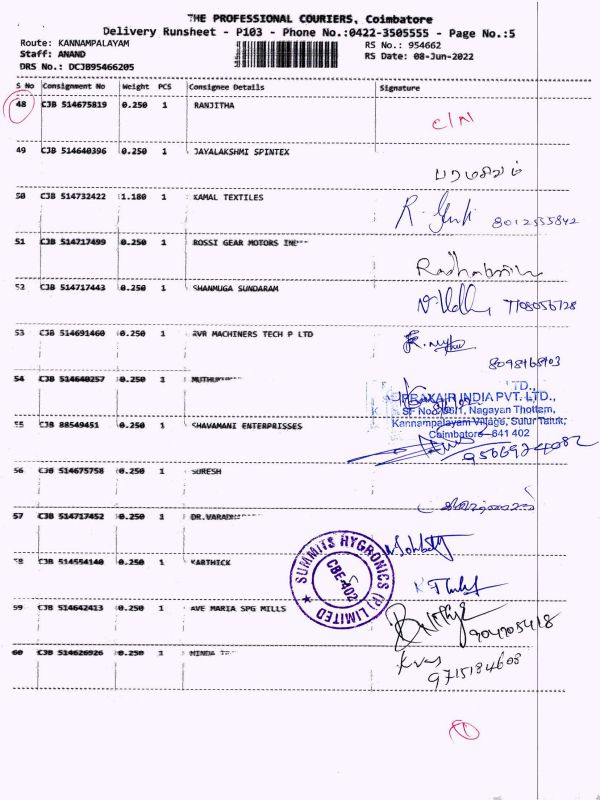 THE PROFESSIONAL COURIERS, Coimbatore
Delivery Runsheet - P103 - Phone No.:0422-3505555 - Page No.:5
Route: KANNAMPALAYAM
RS No.: 954662
Staff: ANAND
RS Date: 08-Jun-2022
DRS No.: DCJB95466205
S No Consignment No Weight PCS Consignee Details Signature
48 CJB 514675819 0.250 1 RANJITHA
C/N
49 CJB 514640396 0.250 1 JAYALAKSHMI SPINTEX
50 CJB 514732422 1.180 1 KAMAL TEXTILES
8012555842
51 CJB 514717499 0.250 1 ROSSI GEAR MOTORS
52 CJB 514717443 0.250 1 SHANMUGA SUNDARAM
7708056728
53 CJB 514691460 0.250 1 AVR MACHINERS TECH P LTD
54 CJB 514640257 0.250 1
PRAXAIR INDIA PVT. LTD.,
Nagayan Thottam,
55 CJB 88549451 0.250 1 SHAVAMANI ENTERPRISSES
Kannampalayam Village, Sulur Taluk,
Coimbatore - 641 402
56 CJB 514675758 0.250 1 SURESH
57 CJB 514717452 0.250 1
58 CJB 514554140 0.250 1 KARTHICK
SUMMITS HYGRONICS (P) LIMITED
CBE-402
59 CJB 514642413 0.250 1 AVE MARIA SPG MILLS
60 CJB 514626926 0.250 1 MINDA
9715184608